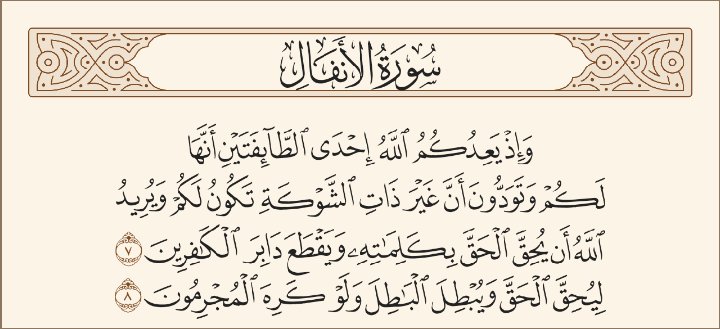 سُورَةُ الأَنفَالِ
وَإِذْ يَعِدُكُمُ ٱللَّهُ إِحْدَى ٱلطَّآئِفَتَيْنِ أَنَّهَا
لَكُمْ وَتَوَدُّونَ أَنَّ غَيْرَ ذَاتِ ٱلشَّوْكَةِ تَكُونُ لَكُمْ وَيُرِيدُ
ٱللَّهُ أَن يُحِقَّ ٱلْحَقَّ بِكَلِمَٰتِهِۦ وَيَقْطَعَ دَابِرَ ٱلْكَٰفِرِينَ ٧
لِيُحِقَّ ٱلْحَقَّ وَيُبْطِلَ ٱلْبَٰطِلَ وَلَوْ كَرِهَ ٱلْمُجْرِمُونَ ٨